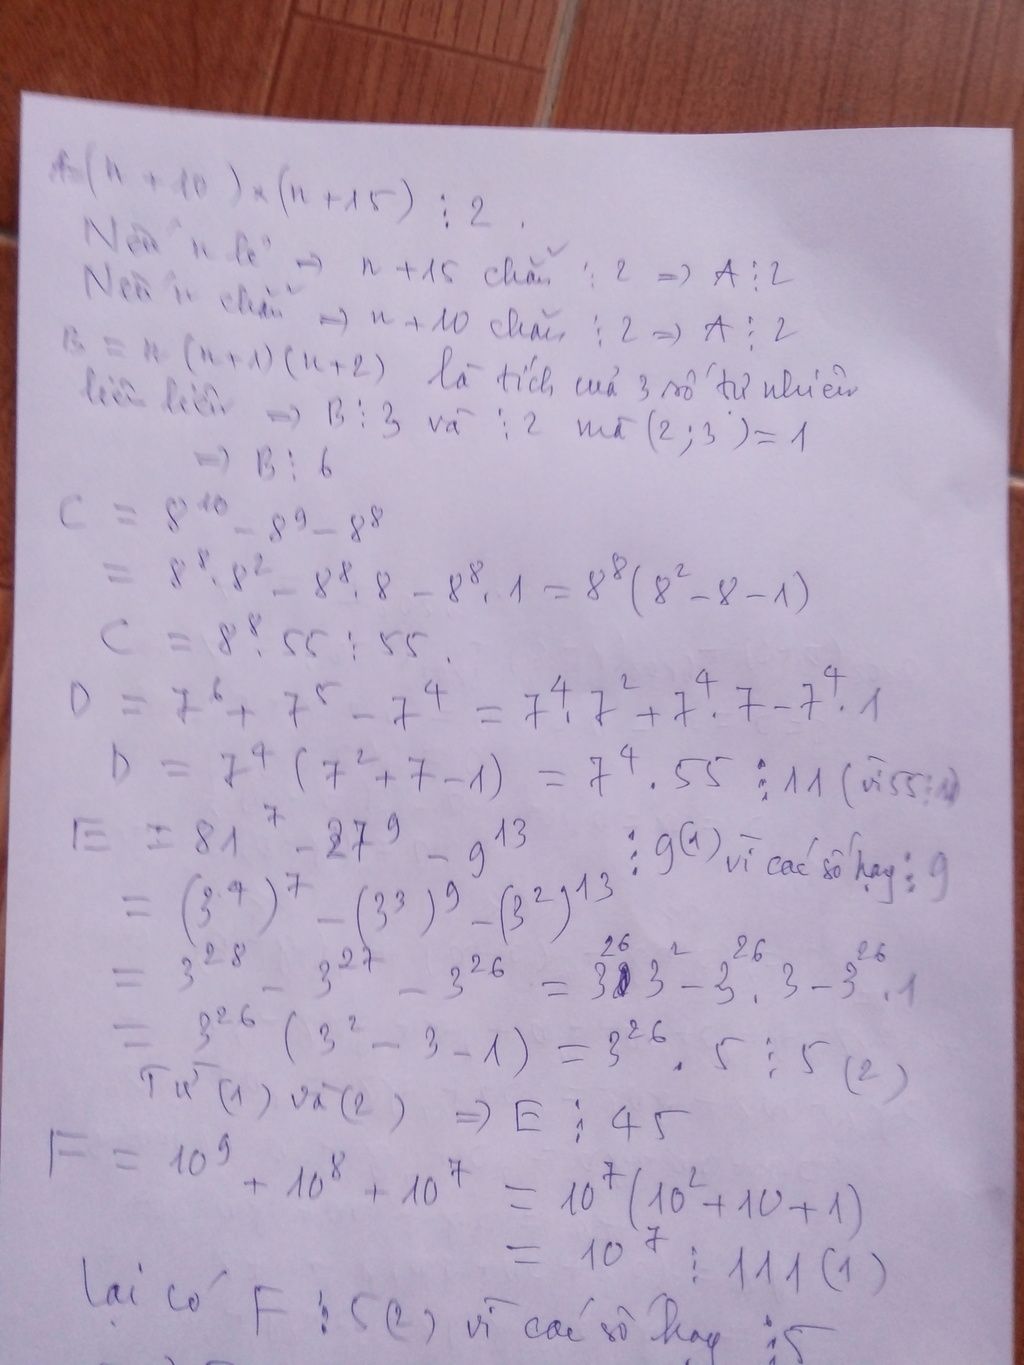 A=(n+10)×(n+15) ⋮ 2.
Nếu n lẻ ⇒ n+15 chẵn ⋮ 2 ⇒ A ⋮ 2
Nếu n chẵn ⇒ n+10 chẵn ⋮ 2 ⇒ A ⋮ 2
B = n(n+1)(n+2) là tích của 3 số tự nhiên
liên tiếp ⇒ B ⋮ 3 và ⋮ 2 mà (2;3) = 1
⇒ B ⋮ 6
C = 8¹⁰ - 8⁹ - 8⁸
= 8⁸.8² - 8⁸.8 - 8⁸.1 = 8⁸(8² - 8 - 1)
C = 8⁸.55 ⋮ 55.
D = 7⁶ + 7⁵ - 7⁴ = 7⁴.7² + 7⁴.7 - 7⁴.1
D = 7⁴(7² + 7 - 1) = 7⁴.55 ⋮ 11 (vì 55 ⋮ 11)
E = 81⁷ - 27⁹ - 9¹³ ⋮ 9(1) vì các số hạng ⋮ 9
= (3⁴)⁷ - (3³)⁹ - (3²)¹³
= 3²⁸ - 3²⁷ - 3²⁶ = 3²⁶.3² - 3²⁶.3 - 3²⁶.1
= 3²⁶(3² - 3 - 1) = 3²⁶.5 ⋮ 5 (2)
Từ (1) và (2) ⇒ E ⋮ 45
F = 10⁹ + 10⁸ + 10⁷ = 10⁷(10² + 10 + 1)
= 10⁷ ⋮ 111(1)
Lại có F ⋮ 5(2) vì các số hạng ⋮ 5